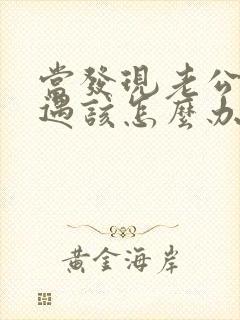 當發現老公
遇該怎麼办
黃金海岸